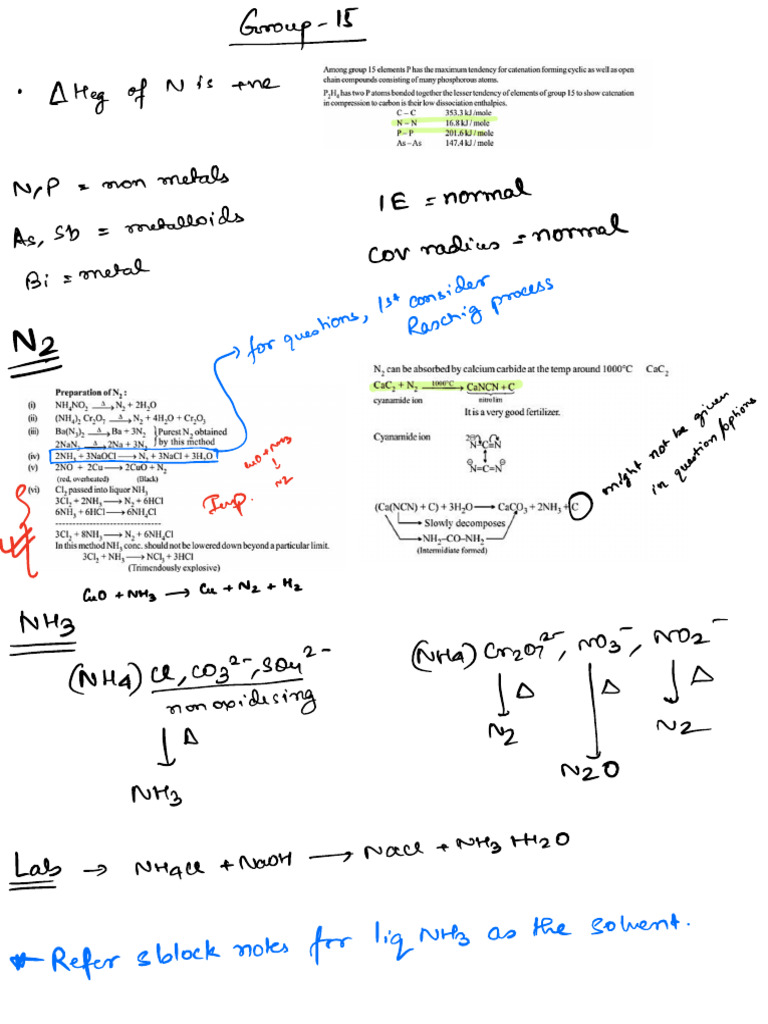 Group-15
• ΔHeg of N is +ve
Among group 15 elements P has the maximum tendency for catenation forming cyclic as well as open
chain compounds consisting of many phosphorous atoms.
P₂H₄ has two P atoms bonded together the lesser tendency of elements of group 15 to show catenation
in compression to carbon is their low dissociation enthalpies.
C – C 353.3 kJ/mole
N – N 16.8 kJ / mole
P – P 201.6 kJ / mole
As – As 147.4 kJ / mole
N, P = non metals
As, Sb = metalloids
Bi = metal
IE = normal
cov radius = normal
for questions, 1st consider
Raschig process
N2
Preparation of N₂ :
(i) NH₄NO₂ —Δ→ N₂ + 2H₂O
(ii) (NH₄)₂ Cr₂O₇ —Δ→ N₂ + 4H₂O + Cr₂O₃
(iii) Ba(N₃)₂ —Δ→ Ba + 3N₂ } Purest N₂ obtained
2NaN₃ —Δ→ 2Na + 3N₂ } by this method
(iv) 2NH₃ + 3NaOCl ⟶ N₂ + 3NaCl + 3H₂O
(v) 2NO + 2Cu ⟶ 2CuO + N₂
(red, overheated) (Black)
(vi) Cl₂ passed into liquor NH₃
3Cl₂ + 2NH₃ ⟶ N₂ + 6HCl
6NH₃ + 6HCl ⟶ 6NH₄Cl
3Cl₂ + 8NH₃ ⟶ N₂ + 6NH₄Cl
In this method NH₃ conc. should not be lowered down beyond a particular limit.
3Cl₂ + NH₃ ⟶ NCl₃ + 3HCl
(Trimendously explosive)
CuO + NH3
↓
N2
Imp.
CuO + NH3 → Cu + N2 + H2
N₂ can be absorbed by calcium carbide at the temp around 1000°C CaC₂
CaC₂ + N₂ —1000°C→ CaNCN + C
cyanamide ion nitrolim
It is a very good fertilizer.
Cyanamide ion
N–C≡N
N=C=N
(Ca(NCN) + C) + 3H₂O ⟶ CaCO₃ + 2NH₃ + C
Slowly decomposes
NH₂–CO–NH₂
(Intermidiate formed)
might not be given
in question/options
NH3
(NH4) Cl, CO3²⁻, SO4²⁻
non oxidesing
↓ Δ
NH3
(NH4) Cr2O7²⁻, NO3⁻, NO2⁻
↓ Δ ↓ Δ ↓ Δ
N2 N2O N2
Lab → NH4Cl + NaOH → NaCl + NH3 + H2O
* Refer s block notes for liq NH3 as the solvent.